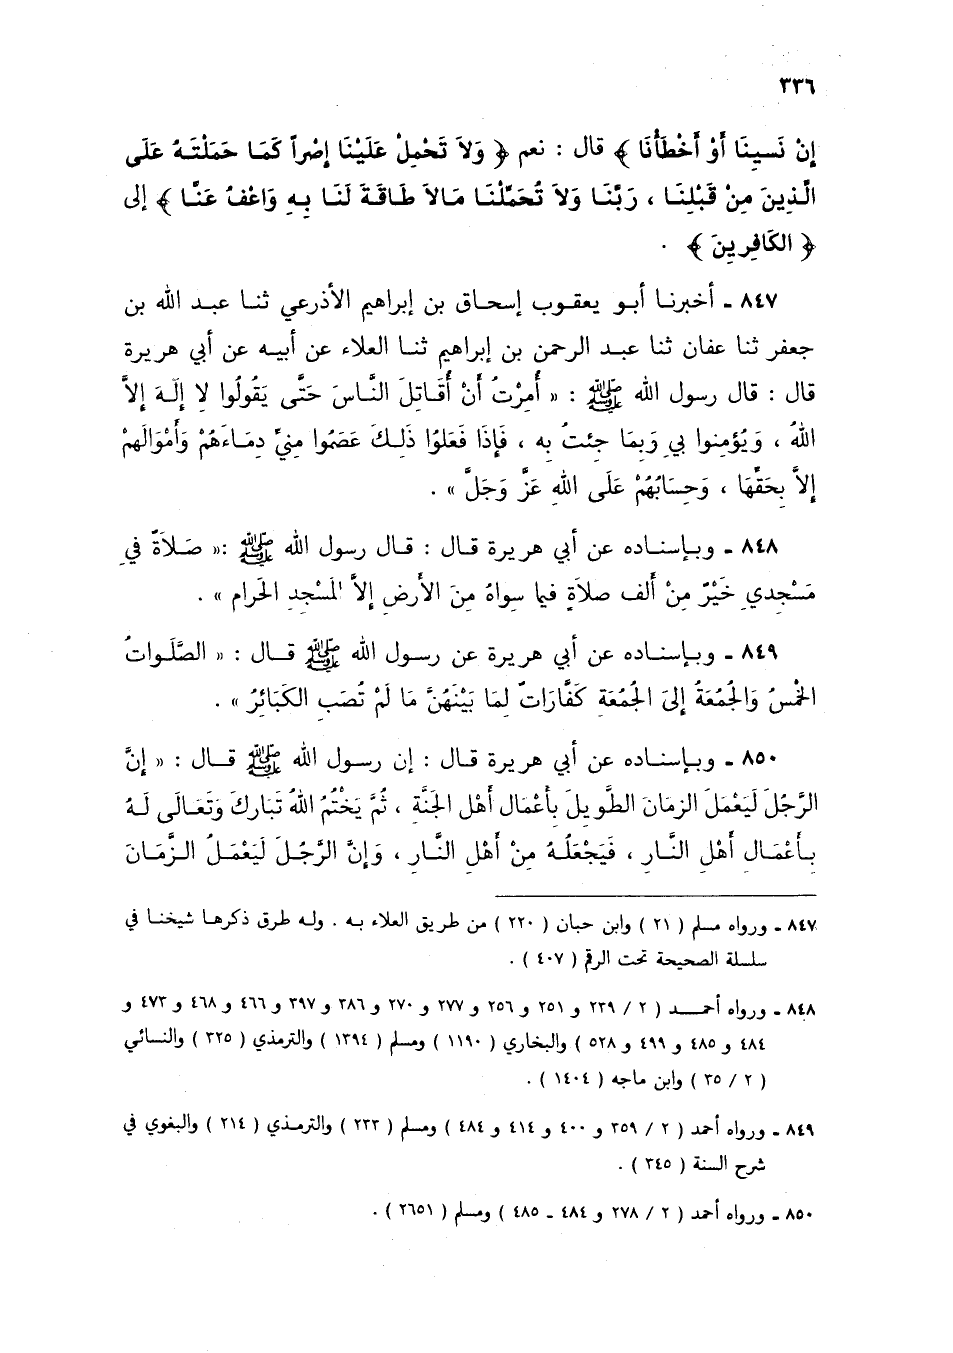 ٣٣٦
إِنْ نَسِينَا أَوْ أَخْطَأْنَا ﴾ قال : نعم ﴿ وَلاَ تَحْمِلْ عَلَيْنَا إِصْراً كَمَا حَمَلْتَهُ عَلَى
الَّذِينَ مِنْ قَبْلِنَا ، رَبَّنَا وَلاَ تُحَمِّلْنَا مَالاَ طَاقَةَ لَنَا بِهِ وَاعْفُ عَنَّا ﴾ إلى
﴿ الكَافِرِينَ ﴾ .
٨٤٧ ـ أخبرنا أبو يعقوب إسحاق بن إبراهيم الأذرعي ثنا عبد الله بن
جعفر ثنا عفان ثنا عبد الرحمن بن إبراهيم ثنا العلاء عن أبيه عن أبي هريرة
قال : قال رسول الله ﷺ : « أُمِرْتُ أَنْ أُقَاتِلَ النَّاسَ حَتَّى يَقُولُوا لا إِلَهَ إِلاَّ
اللهُ ، وَيُؤمِنوا بي وَبِمَا جِئتُ به ، فَإِذَا فَعَلوُا ذَلِكَ عَصَمُوا مِنيِّ دِمَاءَهُمْ وَأَمْوَالَهمْ
إِلاَّ بِحَقِّهَا ، وَحِسَابُهُمْ عَلَى اللهِ عَزَّ وَجَلَّ » .
٨٤٨ ـ وبإسناده عن أبي هريرة قال : قال رسول الله ﷺ :« صَلاَةٌ في
مَسْجدي خَيْرٌ مِنْ أَلف صلاَةٍ فيما سواهُ مِنَ الأَرضِ إِلاَّ المَسْجدِ الحَرام » .
٨٤٩ ـ وبإسناده عن أبي هريرة عن رسول الله ﷺ قال : « الصَّلَواتُ
الخمْسُ وَالجُمُعَةُ إِلىَ الجُمُعَةِ كَفَّارَاتٌ لِمَا بَيْنَهُنَّ مَا لَمْ تُصَب الكَبَائِرُ » .
٨٥٠ ـ وبإسناده عن أبي هريرة قال : إن رسول الله ﷺ قال : « إِنَّ
الرَّجُلَ لَيَعْمَلَ الزمَانَ الطَّوِيلَ بأَعْمَالِ أَهْلِ الجَنَّةِ ، ثُمَّ يَخْتُمُ اللهُ تَبَارِكَ وَتَعَالَى لَهُ
بِأَعْمَالِ أَهْلِ النَّارِ ، فَيَجْعَلُهُ مِنْ أَهْلِ النَّارِ ، وَإِنَّ الرَّجُلَ لَيَعْمَلُ الزَّمَانَ
٨٤٧ ـ ورواه مسلم ( ٢١ ) وابن حبان ( ٢٢٠ ) من طريق العلاء به . وله طرق ذكرها شيخنا في
سلسلة الصحيحة تحت الرقم ( ٤٠٧ ) .
٨٤٨ ـ ورواه أحمد ( ٢ / ٢٣٩ و ٢٥١ و ٢٥٦ و ٢٧٧ و ٢٧٠ و ٣٨٦ و ٣٩٧ و ٤٦٦ و ٤٦٨ و ٤٧٣ و
٤٨٤ و ٤٨٥ و ٤٩٩ و ٥٢٨ ) والبخاري ( ١١٩٠ ) ومسلم ( ١٣٩٤ ) والترمذي ( ٣٢٥ ) والنسائي
( ٢ / ٣٥ ) وابن ماجه ( ١٤٠٤ ) .
٨٤٩ ـ ورواه أحمد ( ٢ / ٣٥٩ و ٤٠٠ و ٤١٤ و ٤٨٤ ) ومسلم ( ٢٣٣ ) والترمذي ( ٢١٤ ) والبغوي في
شرح السنة ( ٣٤٥ ) .
٨٥٠ ـ ورواه أحمد ( ٢ / ٢٧٨ و ٤٨٤ ـ ٤٨٥ ) ومسلم ( ٢٦٥١ ) .